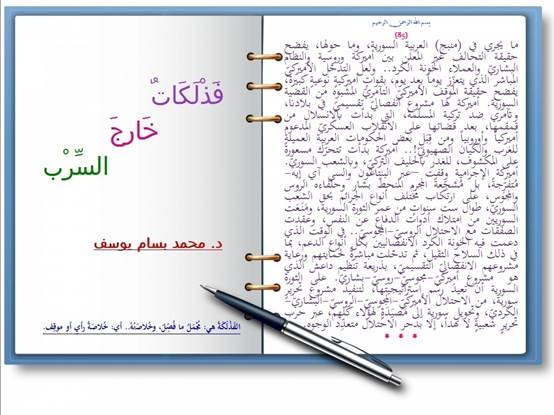 بسم الله الرحمن الرحيم
(85)
ما يجري في (منبج) العربية السورية، وما حولها، يفضح
حقيقة التحالف غير المعلن بين أميركة وروسية والنظام
البشاريّ والعملاء الخونة الكرد.. ولعل التدخّل الأميركيّ
المباشر الذي يتعزّز يوماً بعد يوم، بقوات أميركية نوعية كبيرة،
يفضح حقيقة الموقف الأميركيّ التآمريّ المشبوه من القضية
السورية. أميركة لها مشروع انفصاليّ تقسيميّ في بلادنا،
وتآمريّ ضد تركية المسلمة، التي بدأت بالانسلال من
قمقمها، بعد قضائها على الانقلاب العسكريّ المدعوم
أميركياً وأوروبياً ومن قِبَل بعض الحكومات العربية العميلة
للغرب والكيان الصهيونيّ!.. أميركة بدأت تتحرّك مسعورةً
على المكشوف، للغدر بالحليف التركيّ، وبالشعب السوريّ.
أميركة الإجرامية وقفت -عبر البنتاغون والسي آي إيه-
متفرّجة، بل مشجّعة المجرم المنحطّ بشار وحلفاءه الروس
والمجوس، على ارتكاب مختلف أنواع الجرائم بحق الشعب
السوريّ، طوال ست سنوات من عمر الثورة السورية، ومَنَعَت
السوريين من امتلاك أدوات الدفاع عن النفس، وعقدت
الصفقات مع الاحتلال الروسيّ-المجوسيّ.. في الوقت الذي
دعمت فيه الخونة الكرد الانفصاليين بكل أنواع الدعم، بما
في ذلك السلاح الثقيل، ثم تدخّلت مباشرةً لحمايتهم ورعاية
مشروعهم الانفصاليّ التقسيميّ، بذريعة تنظيم داعش الذي
هو مشروع أميركيّ-مجوسيّ-روسيّ-بشاريّ. على الثورة
السورية أن تعيد رسم استراتيجيتها، لتنفيذ مشروع تحرير
سورية، من الاحتلال الأميركيّ-المجوسيّ-الروسيّ-البشاريّ-
الكرديّ، وتحويل سورية إلى مصيدةٍ لهؤلاء كلهم، عبر حرب
تحريرٍ شعبيةٍ لا تهدأ، إلا بدحر الاحتلال متعدد الوجوه.
* * *
فَذْلَكَاتٌ
خَارِجَ
السِّرْب
د. محمد بسام يوسف
الفَذْلَكَة هي: مُجْمَل ما فُصِّلَ، وخُلاصَتُه.. أي: خُلاصَةُ رأيٍ أو موقِف.